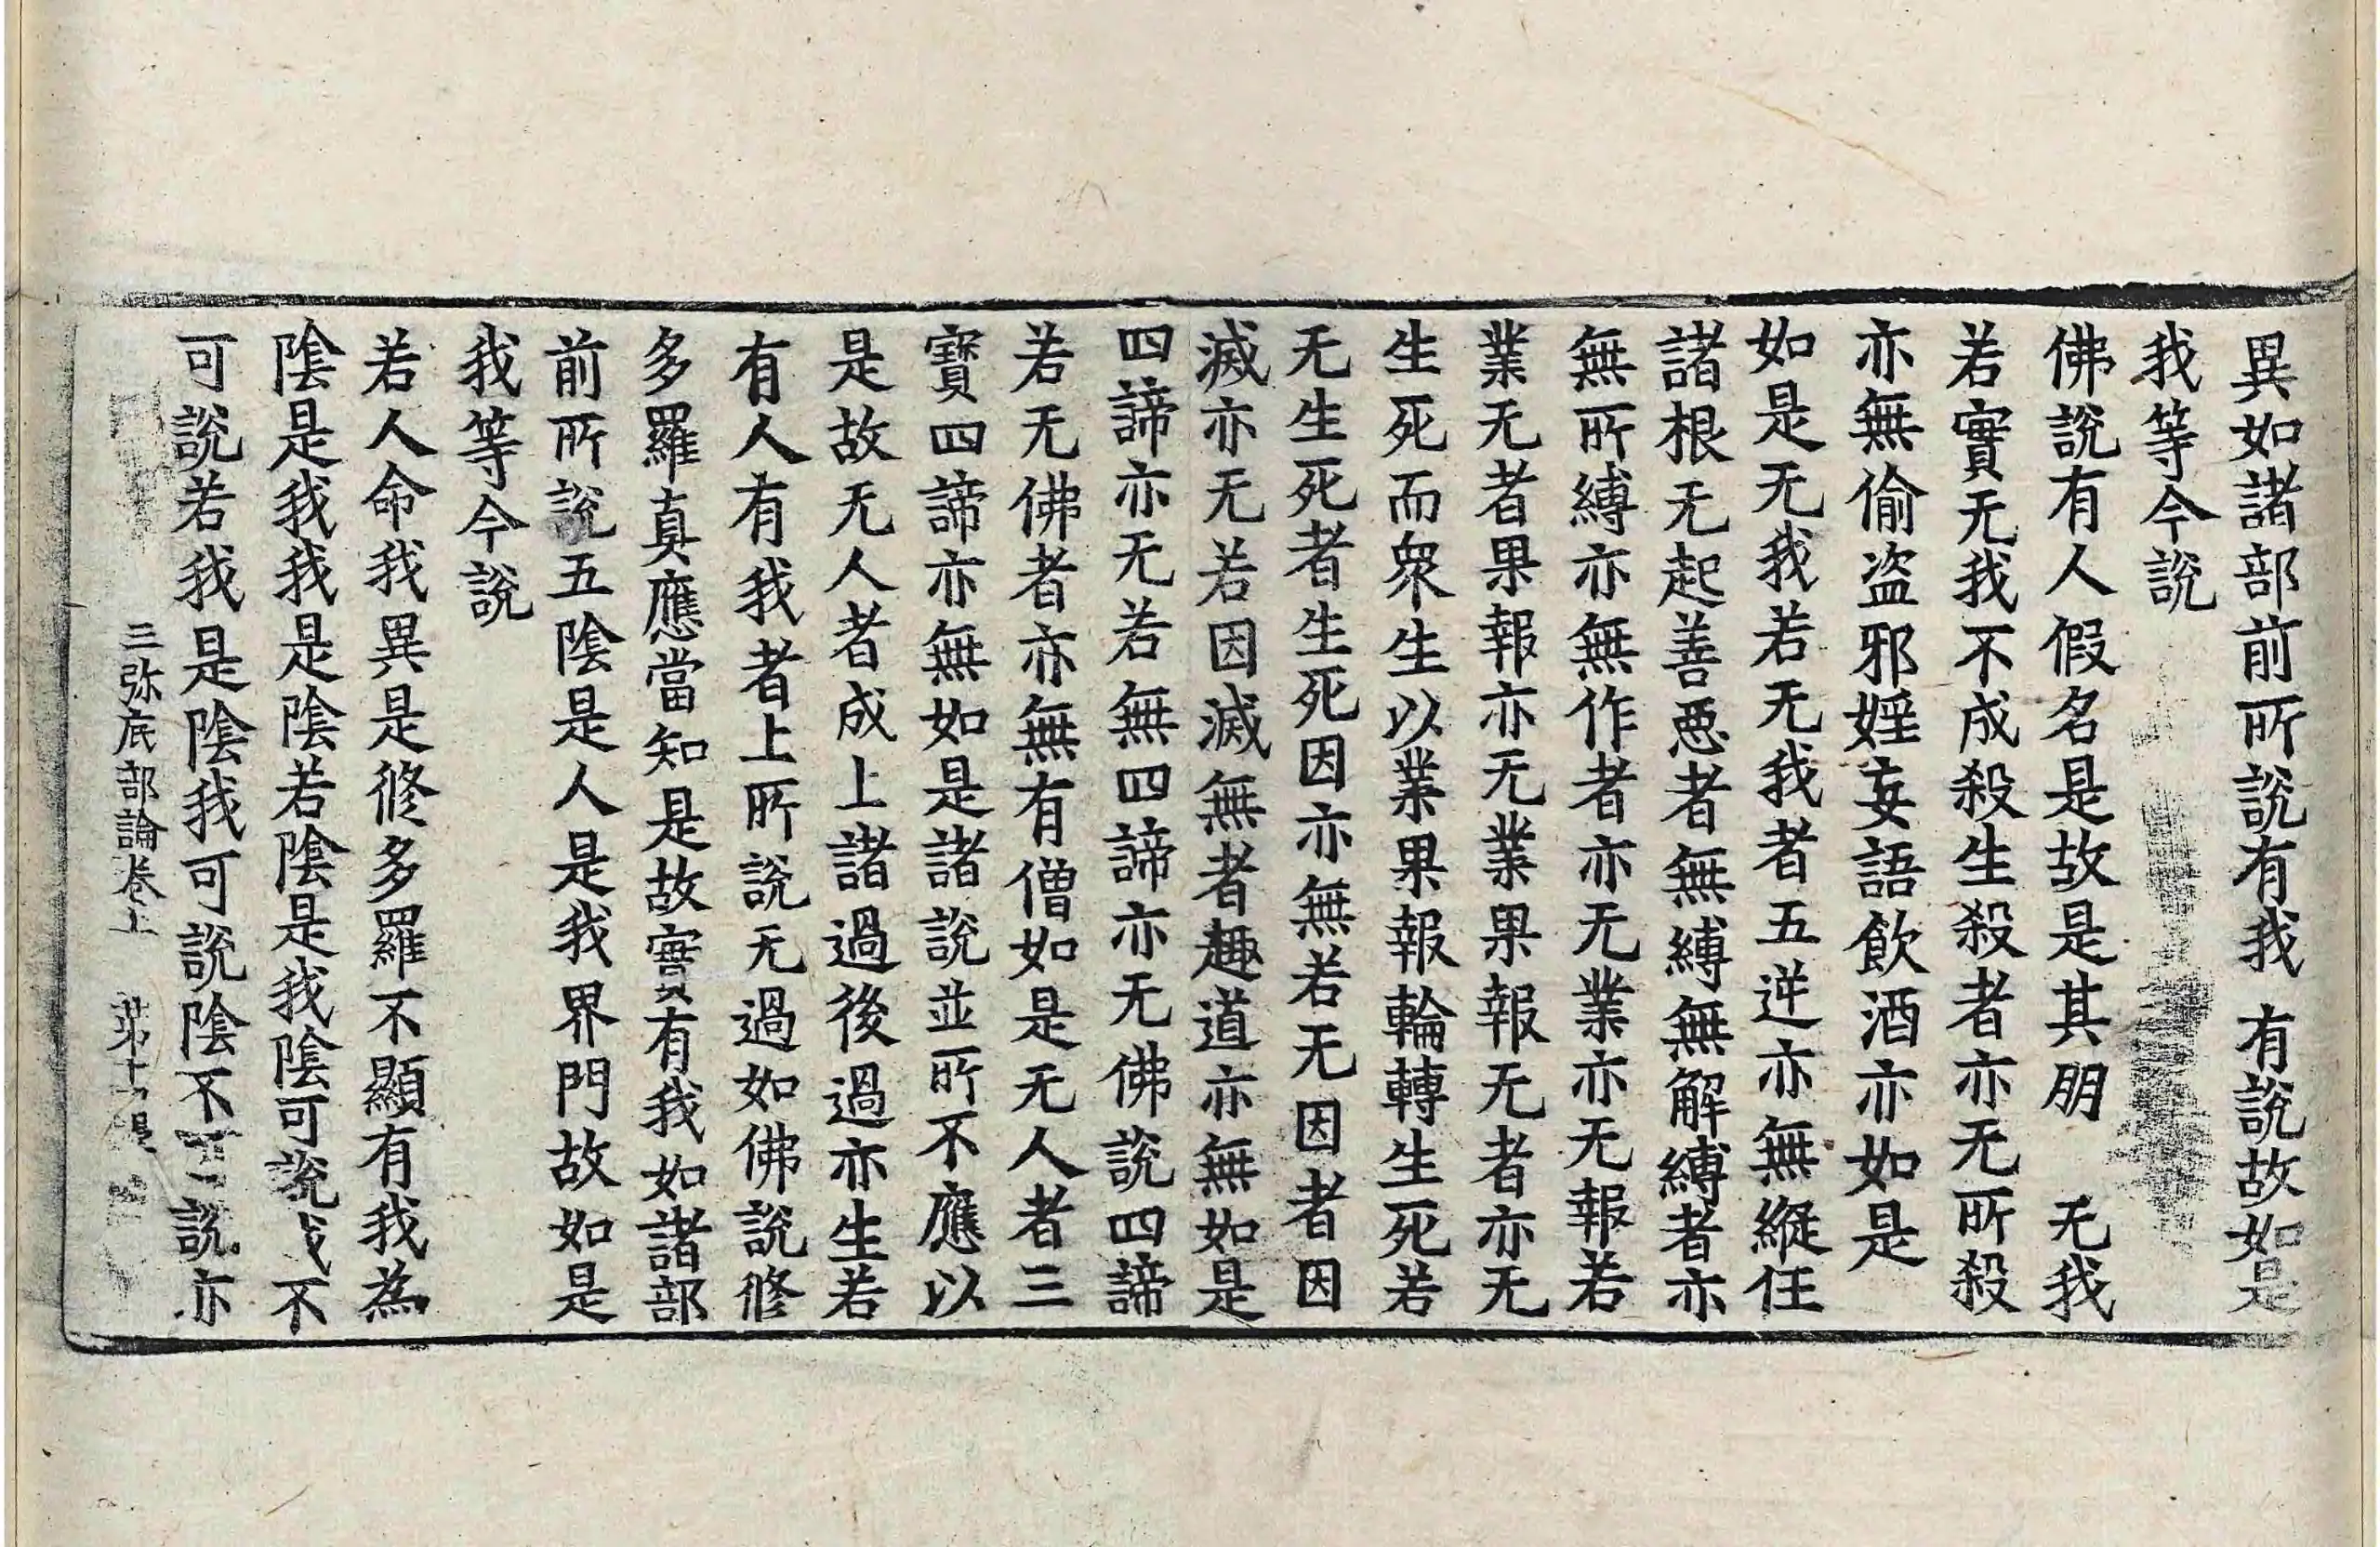 異如諸部前所說有我 有說故如是
我等今說
佛說有人假名是故是其朋 无我
若實无我不成殺生殺者亦无所殺
亦無偷盗邪婬妄語飲酒亦如是
如是无我若无我者五逆亦無縱任
諸根无起善惡者無縛無解縛者亦
無所縛亦無作者亦无業亦无報若
業无者果報亦无業果報无者亦无
生死而衆生以業果報輪轉生死若
无生死者生死因亦無若无因者因
滅亦无若因滅無者趣道亦無如是
四諦亦无若無四諦亦无佛說四諦
若无佛者亦無有僧如是无人者三
寶四諦亦無如是諸說並所不應以
是故无人者成上諸過後過亦生若
有人有我者上所說无過如佛說修
多羅真應當知是故實有我如諸部
前所說五陰是人是我界門故如是
我等今說
若人命我異是修多羅不顯有我為
陰是我我是陰若陰是我陰可說我不
可說若我是陰我可說陰不說亦
三弥底部論卷上 苐十